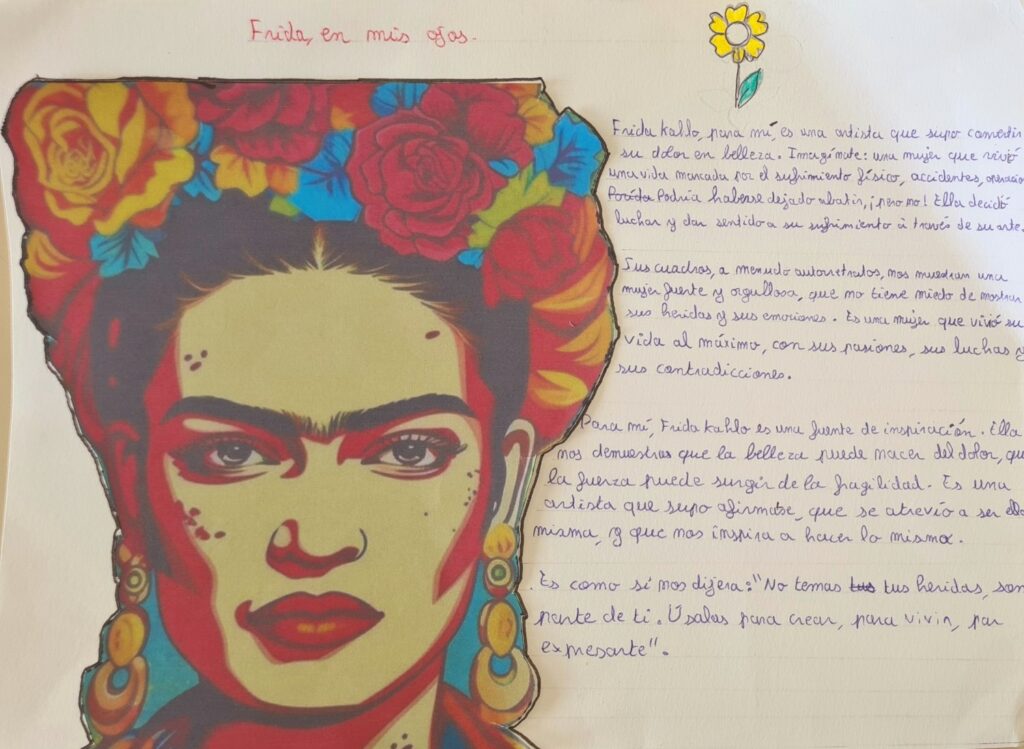 Frida, en mis ojos.
Frida Kahlo, para mí, es una artista que supo convertir
su dolor en belleza. Imagínate: una mujer que vivió
una vida marcada por el sufrimiento físico, accidentes, operacion
Podría haberse dejado abatir, ¡pero no! Ella decidió
luchar y dar sentido a su sufrimiento à través de su arte.
Sus cuadros, a menudo autorretratos, nos muestran una
mujer fuerte y orgullosa, que no tiene miedo de mostrar
sus heridas y sus emociones. Es una mujer que vivió su
vida al máximo, con sus pasiones, sus luchas y
sus contradicciones.
Para mí, Frida Kahlo es una fuente de inspiración. Ella
nos demuestras que la belleza puede nacer del dolor, que
la fuerza puede surgir de la fragilidad. Es una
artista que supo afirmarse, que se atrevió a ser ella
misma, y que nos inspira a hacer lo mismo.
Es como si nos dijera: "No temas tus heridas, son
parte de ti. Úsalas para crear, para vivir, par
expresarte".